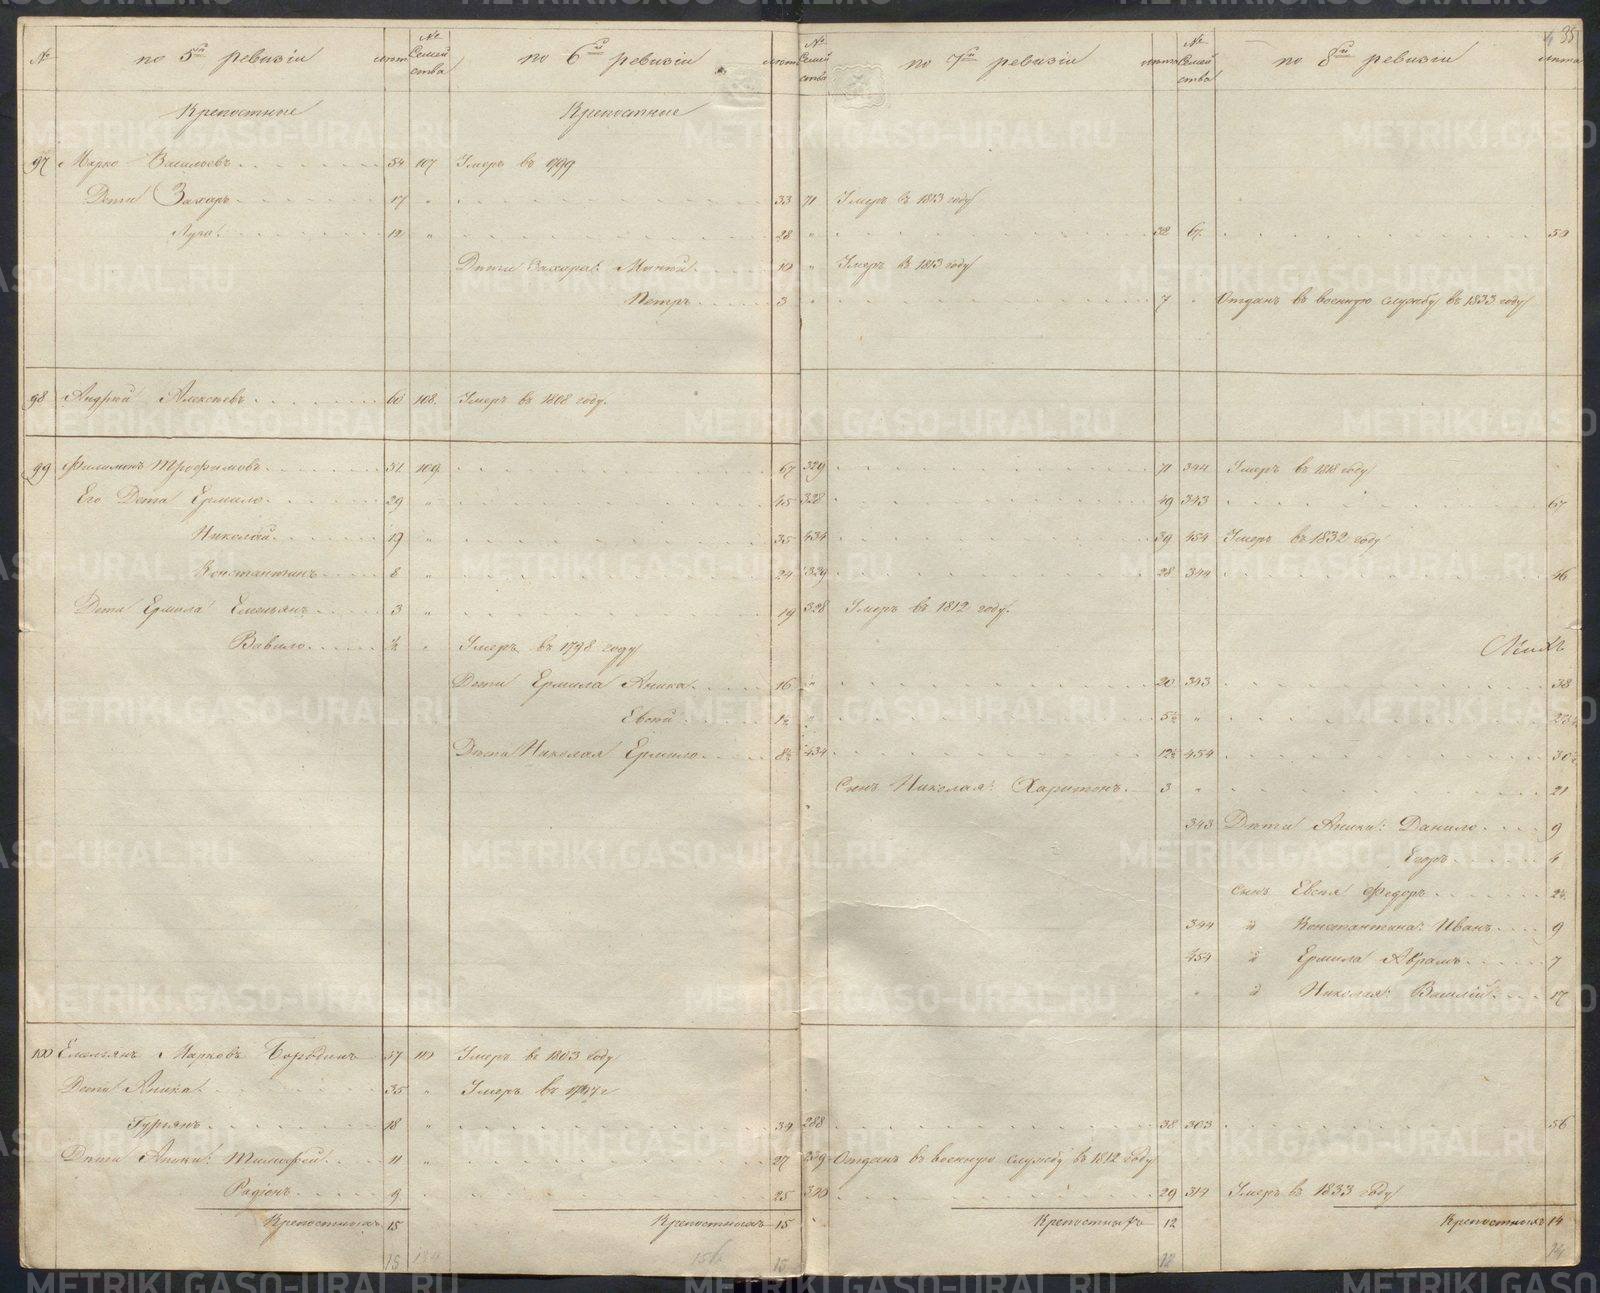 № по 5й ревизіи лѣта № Семейства по 6й ревизіи лѣта № Семейства по 7й ревизіи лѣта № Семейства по 8й ревизіи лѣта
35
Крепостные Крепостные
97 Марко Васильевъ 54 107 Умеръ въ 1799
Дети Захаръ 17 " 33 71 Умеръ въ 1813 году
Лука 12 " 28 " 32 67 50
Дѣти Захара: 10 " Умеръ въ 1813 году
Петръ 3 " 7 " Отданъ въ военную службу въ 1833 году
98 Андрей Алексѣевъ 60 108. Умеръ въ 1808 году.
99 Филимонъ Трофимовъ 51 109 67 329 71 344 Умеръ въ 1818 году
Его Дети Ермило 29 " 45 328 49 343 67
Николай 19 " 35 434 39 454 Умеръ въ 1832 году
Константинъ 8 " 24 329 28 344 46
Дети Ермила Емельянъ 3 " 19 328 Умеръ въ 1812 году.
Вавило ½ " Умеръ въ 1798 году
Дети Ермила Аника 16 " 20 343 38
Евсей 1½ " 5½ " 23½
Дѣти Николая Ермило 8½ 434 12½ 454 30½
Сынъ Николая: Харитонъ 3 " 21
343 Дѣти Аники: Данило 9
Егоръ 4
сынъ Евсея Федоръ 2½
344 " Константина: Иванъ 9
454 " Ермила Абрамъ 7
" " Николая: Василій 17
100 Емельянъ Марковъ Бородинъ 57 110 Умеръ въ 1803 году
Дети Аника 35 " Умеръ въ 1797 г
Гурьянъ 18 " 34 288 38 303 56
Дѣти Аники: Тимофей 11 " 27 289 Отданъ въ военную службу въ 1812 году
Радіонъ 9 25 300 29 314 Умеръ въ 1833 году
Крепостныхъ 15 Крепостныхъ 15 Крепостныхъ 12 Крепостныхъ 14
15 15 12 14
METRIKI.GASO-URAL.RU